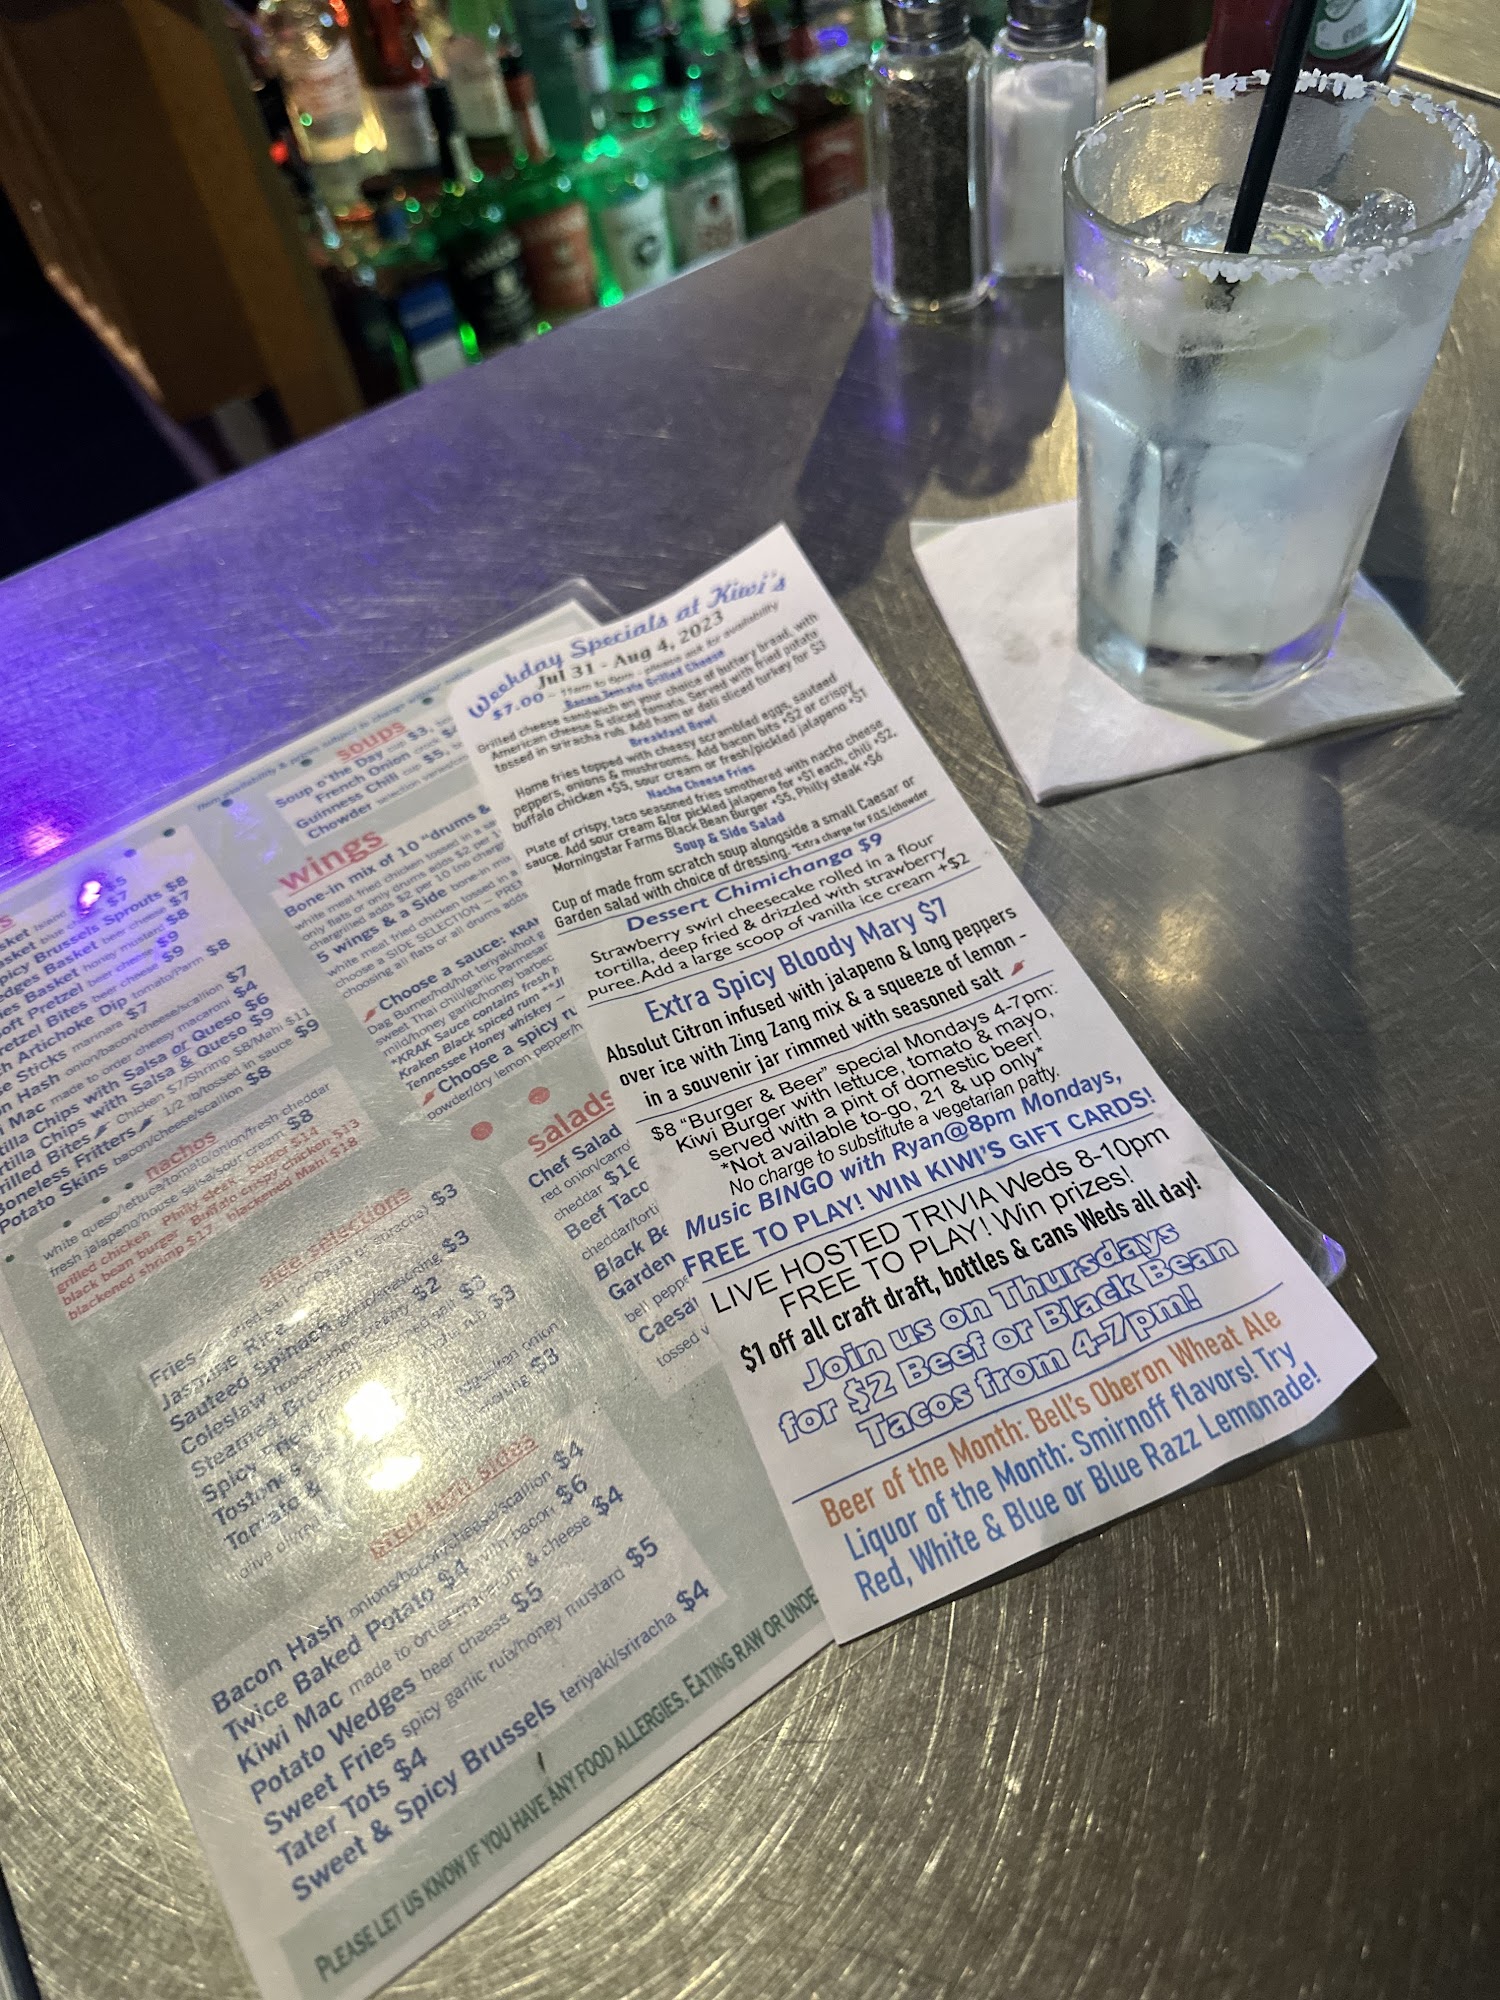 Weekday Specials at Kiwi's
Jul 31 - Aug 4, 2023
$7.00 - 11am to 6pm - please ask for availability
Bacon Tomato Grilled Cheese
Grilled cheese sandwich on your choice of buttery bread, with
American cheese & sliced tomato. Served with fried potato
tossed in sriracha rub. Add ham or deli sliced turkey for $3
Breakfast Bowl
Home fries topped with cheesy scrambled eggs, sauteed
peppers, onions & mushrooms. Add bacon bits +$2 or crispy
buffalo chicken +$5, sour cream or fresh/pickled jalapeno +$1
Nacho Cheese Fries
Plate of crispy, taco seasoned fries smothered with nacho cheese
sauce. Add sour cream &/or pickled jalapeno for +$1 each, chili +$2,
Morningstar Farms Black Bean Burger +$5, Philly steak +$6
Soup & Side Salad
Cup of made from scratch soup alongside a small Caesar or
Garden salad with choice of dressing. *Extra charge for F.O.S./chowder
Dessert Chimichanga $9
Strawberry swirl cheesecake rolled in a flour
tortilla, deep fried & drizzled with strawberry
puree. Add a large scoop of vanilla ice cream +$2
Extra Spicy Bloody Mary $7
Absolut Citron infused with jalapeno & long peppers
over ice with Zing Zang mix & a squeeze of lemon -
in a souvenir jar rimmed with seasoned salt
$8 "Burger & Beer" special Mondays 4-7pm:
Kiwi Burger with lettuce, tomato & mayo,
served with a pint of domestic beer!
*Not available to-go, 21 & up only*
No charge to substitute a vegetarian patty.
Music BINGO with Ryan@8pm Mondays,
FREE TO PLAY! WIN KIWI'S GIFT CARDS!
LIVE HOSTED TRIVIA Weds 8-10pm
FREE TO PLAY! Win prizes!
$1 off all craft draft, bottles & cans Weds all day!
Join us on Thursdays
for $2 Beef or Black Bean
Tacos from 4-7pm!
Beer of the Month: Bell's Oberon Wheat Ale
Liquor of the Month: Smirnoff flavors! Try
Red, White & Blue or Blue Razz Lemonade!
Item availability & prices subject to change without
soups
Soup o'the Day cup $3,
French Onion crock
Guinness Chili cup $5,
Chowder selection varies/
wings
Bone-in mix of 10 "drums &
white meat fried chicken tossed in a
only flats or only drums adds $2 per
chargrilled adds $2 per 10 (no charge
5 wings & a Side bone-in mix
white meat fried chicken tossed in a
choose a SIDE SELECTION – PRE
choosing all flats or all drums adds
Choose a sauce: KRAK
Dag Burner/hot/teriyaki/hot g
sweet Thai chili/garlic Parmesan
mild/honey garlic/honey barbec
*KRAK Sauce contains fresh h
Kraken Black spiced rum **JI
Tennessee Honey whiskey –
Choose a spicy ru
powder/dry lemon pepper/h
salads
Chef Salad
red onion/carro
cheddar $16
Beef Taco
cheddar/torti
Black Be
Garden
bell peppe
Caesar
tossed w
$5
$7
Spicy Brussels Sprouts $8
Basket beer cheese $7
Basket honey mustard $8
Soft Pretzel beer cheese $9
Pretzel Bites beer cheese $9
Artichoke Dip tomato/Parm $8
Sticks marinara $7
Hash onion/bacon/cheese/scallion $7
Mac made to order cheesy macaroni $4
Chips with Salsa or Queso $6
Chips with Salsa & Queso $9
Grilled Bites Chicken $7/Shrimp $8/Mahi $11
Boneless Fritters 1/2 lb/tossed in sauce $9
Potato Skins bacon/cheese/scallion $8
nachos
white queso/lettuce/tomato/onion/fresh cheddar
fresh jalapeno/house salsa/sour cream $8
Philly steak burger $14
grilled chicken Buffalo crispy chicken $13
black bean burger blackened Mahi $18
blackened shrimp $17
side selections
Fries $3
Jasmine Rice
Sauteed Spinach $3
Coleslaw $2
Steamed Broccoli $3
Spicy $3
Tostones
Tomato & $3
Bacon Hash onions/bacon/cheese/scallion $4
Twice Baked Potato $4 with bacon $6
Kiwi Mac made to order macaroni & cheese $4
Potato Wedges beer cheese $5
Sweet Fries spicy garlic rub/honey mustard $5
Tater Tots $4
Sweet & Spicy Brussels teriyaki/sriracha $4
PLEASE LET US KNOW IF YOU HAVE ANY FOOD ALLERGIES. EATING RAW OR UNDE